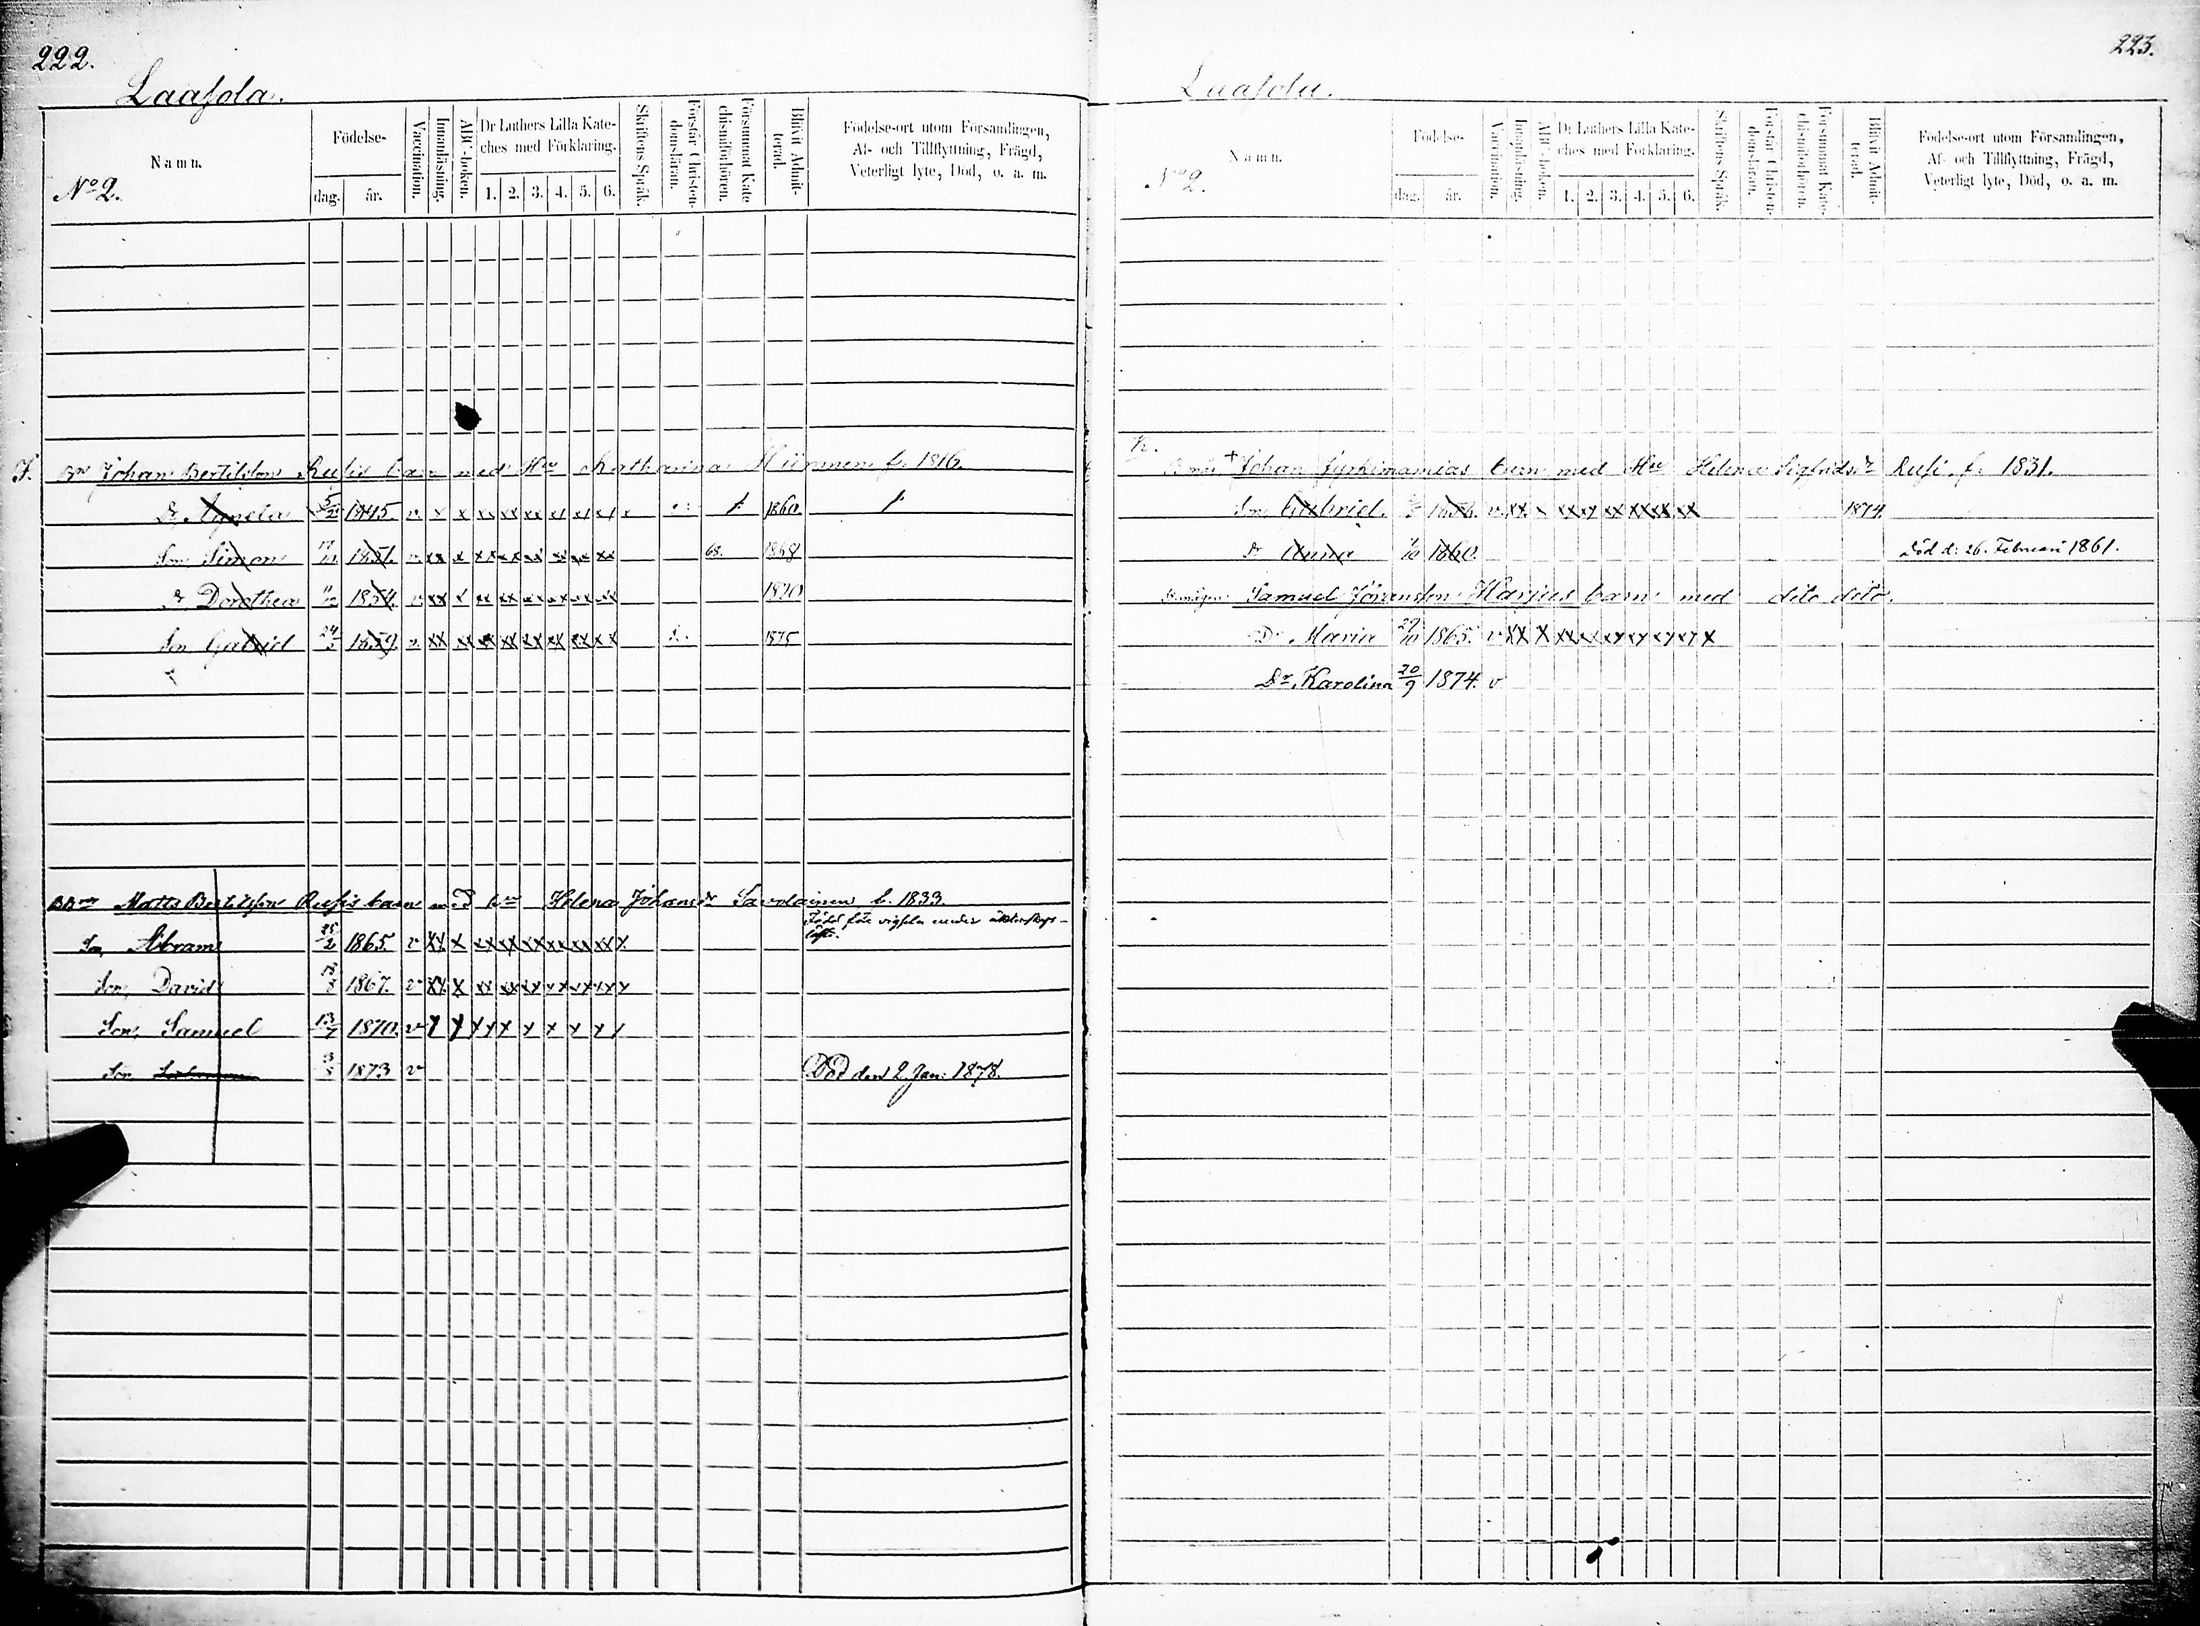 222.
Laasola.
Namn.
No 2.
Födelse-
dag.
år.
Vaccination.
Innanläsning.
ABC-boken.
Dr Luthers Lilla Kate-
ches med Förklaring.
1. 2. 3. 4. 5. 6.
Skriftens Språk.
Förstår Christen-
domsläran.
Försummat Kate
chismiförhören.
Blifvit Admit-
terad.
Födelse-ort utom Församlingen,
Af- och Tillflyttning, Frägd,
Veterligt lyte, Död, o. a. m.
J. Bn Johan Bertilsson Rusis barn med Hu Katharina Hiironen f. 1816.
Dr Agneta 5/2 1845. v x x xx xx xx xx xx xx x 1. 1860.
Son Simon 17/10 1851. v xx x xx xx xx xx xx xx 68. 1868
Dr Dorothea 11/12 1854. v xx x xx xx xx xx xx xx 1870
Son Gabriel 24/5 1859. v. xx xx xx xx xx xx xx xx 1875
BBns Matts Bertilsson Rusis barn med hu Helena Johansdr Savolainen f. 1833
Född före vigseln under äktenskaps-
löfte.
Son, Abram 25/2 1865. v xx x xx xx xx xx xx xx x
Son, David 18/8 1867. v xx x xx xx xx xx xx xx x
Son, Samuel 13/7 1870. v x x x x x x x x x x
Son 1873 v Död den 2 Jan: 1878.
223.
Laasola.
Namn.
No 2.
Födelse-
dag.
år.
Vaccination.
Innanläsning.
ABC-boken.
Dr Luthers Lilla Kate-
ches med Förklaring.
1. 2. 3. 4. 5. 6.
Skriftens Språk.
Förstår Christen-
domsläran.
Försummat Kate-
chismiförhören.
Blifvit Admit-
terad.
Födelse-ort utom Församlingen,
Af- och Tillflyttning, Frägd,
Veterligt lyte, Död, o. a. m.
+ Johan Jyrkinainias barn med Hu Helena Sigfridsdr Rusi, f. 1831.
Son Gabriel. 1856. v xx x xx xx xx xx xx xx 1874.
Dr Anna 1/10 1860. Död d: 26. Februari 1861.
Samuel Jöransson Harjus barn med dito dito.
Dr Maria 29/10 1865. v xx x xx xx xx xx xx xx x
Dr. Karolina 20/9 1874. v